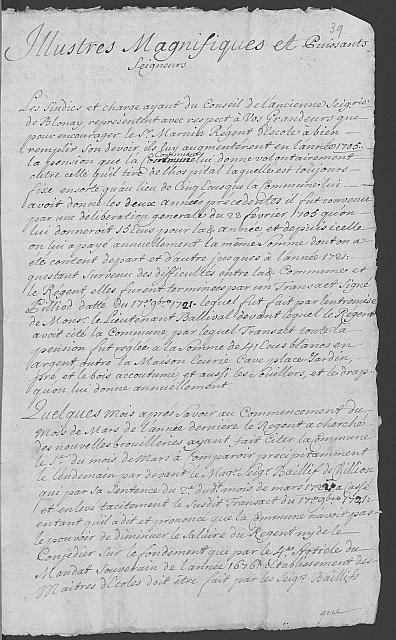 39
Illustres Magnifiques et Puissants
Seigneurs
Les Sindics et charge ayant du Conseil de l'ancienne Seigrie
de Blonay representent avec respect à Vos Grandeurs que
pour encourager le Sr. Mamin Regent d'Escole à bien
remplir son devoir ils luy augmenterent en l'année 1705
la pension que la Commune lui donne volontairement
oultre celle quil tire de l'hospital laquelle est toujours
fixe ensorte qu'au lieu de Cinq Ecus que la Commune lui
avoit donné les deux années précedentes il fut convenu
par une deliberation generale du 22 fevrier 1705 qu'on
lui donneroit 15 Ecus pour lad. année, et depuis icelle
on lui a payé annuellement la même somme dont on a
eté content de part et d'autre jusques à l'année 1721.
questant Survenu des difficultés entre lad. Commune et
le Regent elles furent terminées par un Transact Signé
Pilliod datté Du 17e 9bre 1721. lequel fut fait par l'entremise
de Monsr. le Lieutenant Ballival devant lequel le Regent
avoit cité la Commune par lequel Transact toute la
pension fut reglée à la Somme de 41 Ecus blancs en
argent, outre la Maison Curée Cave place Jardin,
pré, et le bois accoutumé, et aussi les Souliers, et le drap
qu'on lui donne annuellement
Quelques mois apres Savoir au Commencement du
mois de Mars de l'année derniere le Regent a cherché
des nouvelles brouilleries ayant fait Citer la Commune
le 1er du mois de Mars à Comparoir précipitamment
le lendemain par devant le Magce. Seigr. Baillif
que par sa Sentence du 2e dud. mois de mars 1722 a Cassé
et enlevé tacitement le Susdit Transact du 17e 9bre 1721.
entant qu'il a dit et prononcé que la Commune n'avoit pas
le pouvoir de diminuer le Salaire du Regent ny de le
Conjedier Sur le fondement que par le 4e Article du
Mandat Souverain de l'année 1676 l'etablissement des
Maitres d'Ecoles doit être fait par les Seigrs. Baillifs
que